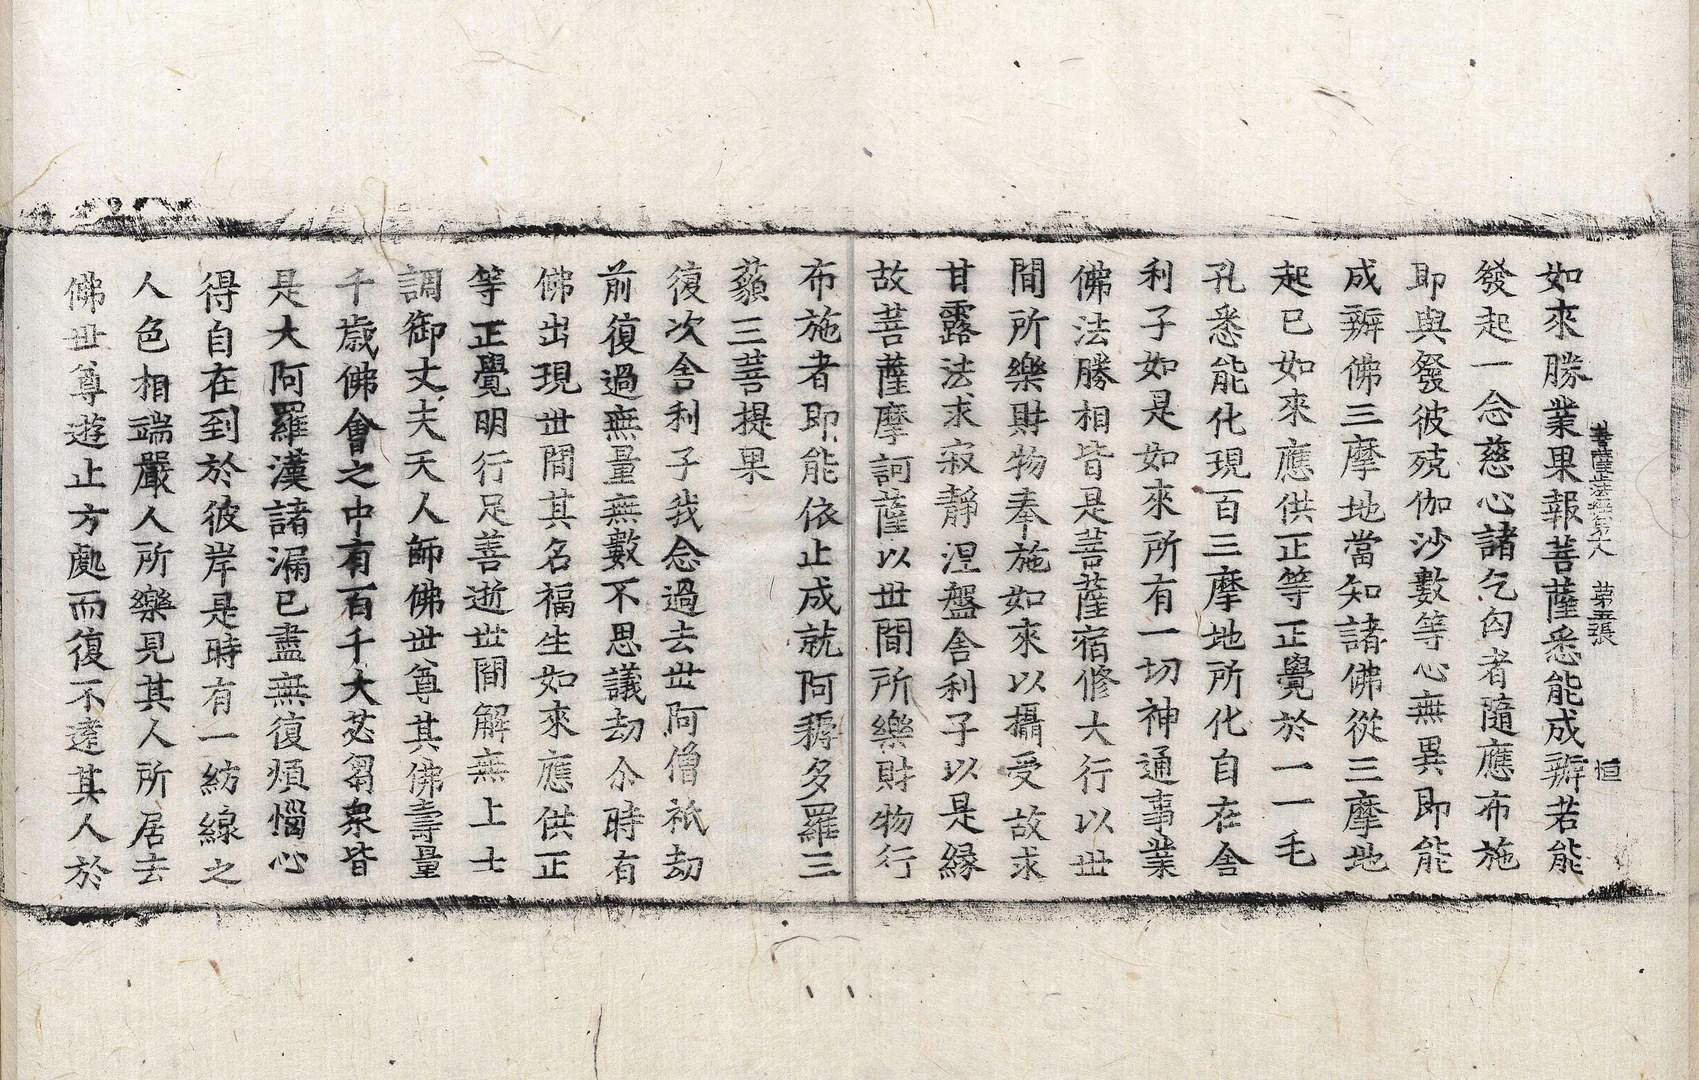 菩薩正法經卷第八　第五張　恒
如來勝業果報菩薩悉能成辦若能
發起一念慈心諸乞匃者隨應布施
即與發彼殑伽沙數等心無異即能
成辦佛三摩地當知諸佛從三摩地
起已如來應供正等正覺於一一毛
孔悉能化現百三摩地所化自在舍
利子如是如來所有一切神通事業
佛法勝相皆是菩薩宿修大行以世
間所樂財物奉施如來以攝受故求
甘露法求寂靜涅盤舍利子以是緣
故菩薩摩訶薩以世間所樂財物行
布施者即能依止成就阿耨多羅三
藐三菩提果
復次舍利子我念過去世阿僧祇劫
前復過無量無數不思議劫尒時有
佛出現世間其名福生如來應供正
等正覺明行足善逝世間解無上士
調御丈夫天人師佛世尊其佛壽量
千歲佛會之中有百千大苾芻衆皆
是大阿羅漢諸漏已盡無復煩惱心
得自在到於彼岸是時有一紡線之
人色相端嚴人所樂見其人所居去
佛世尊遊止方處而復不遠其人於